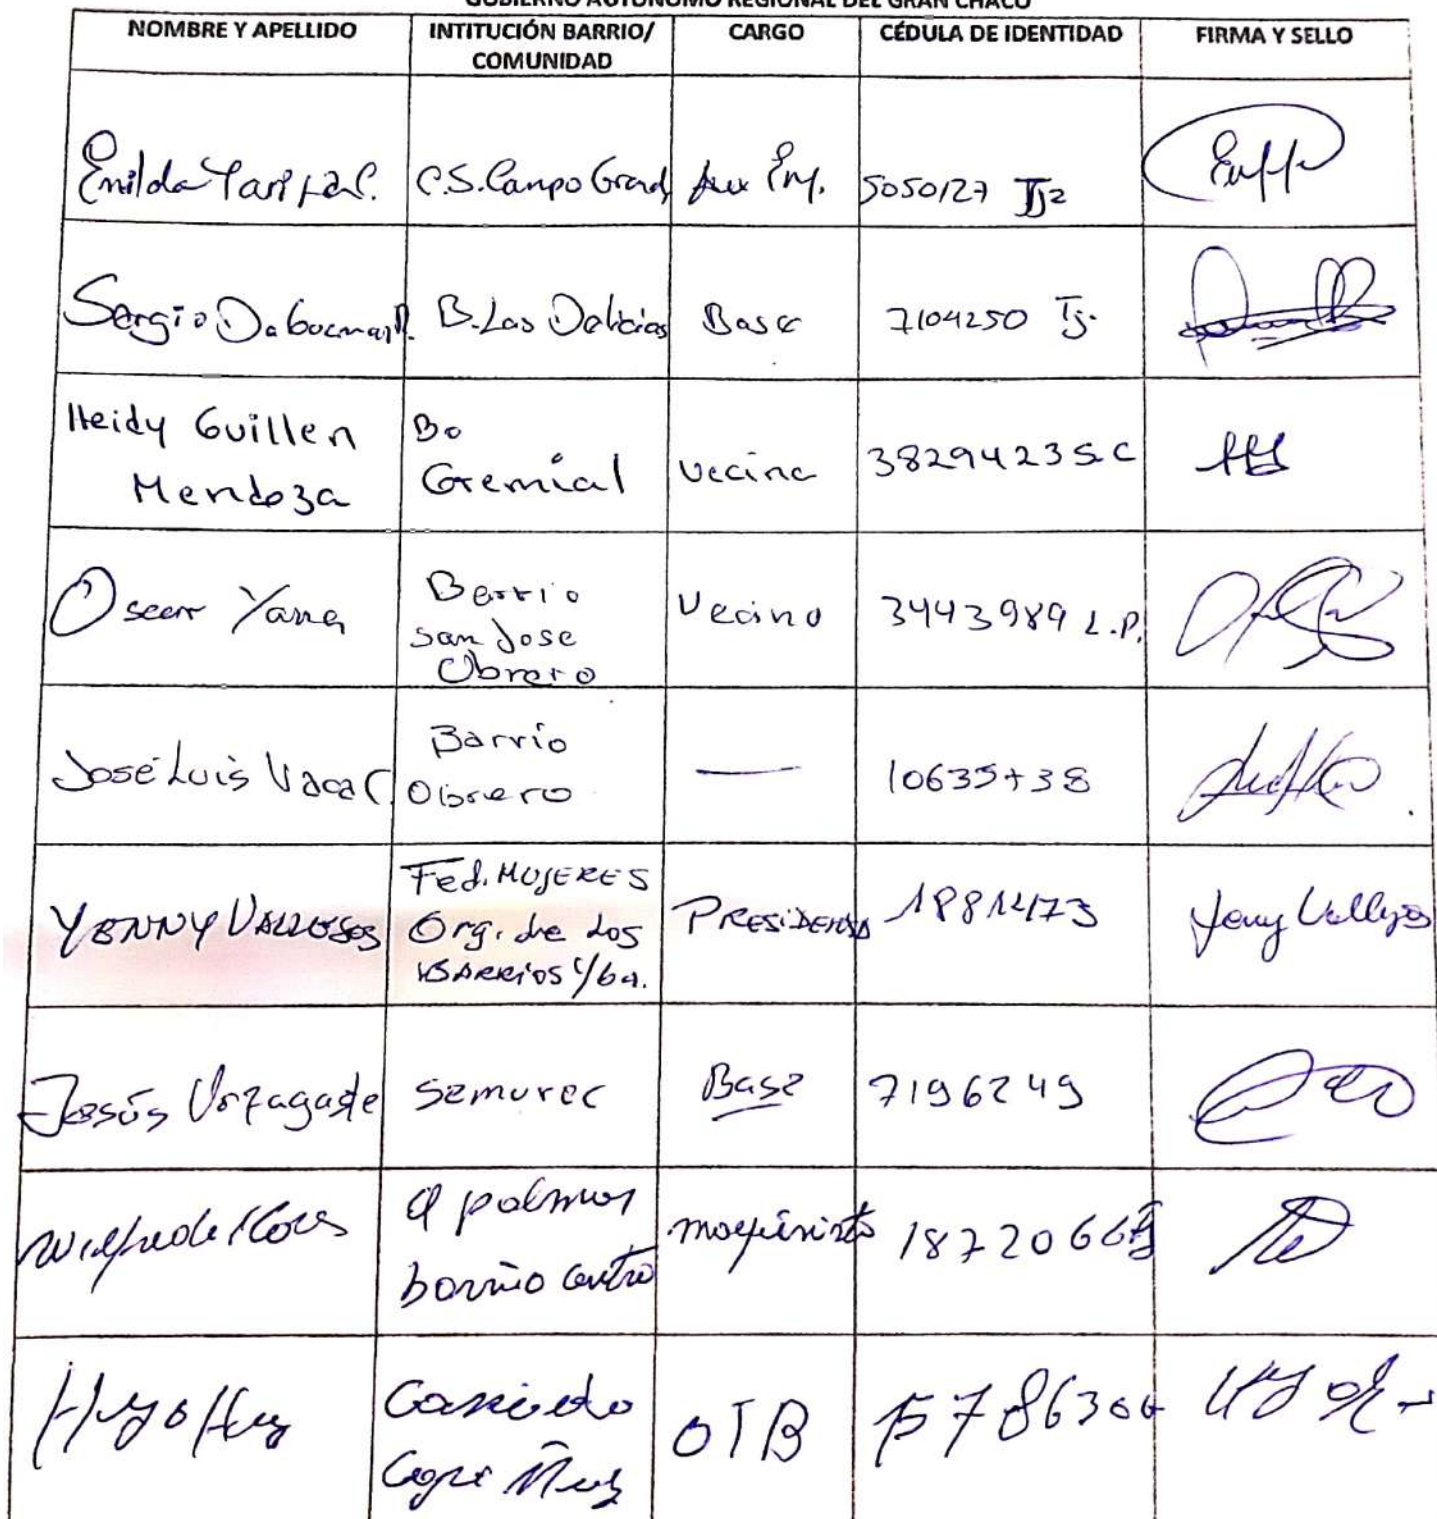 GOBIERNO AUTÓNOMO REGIONAL DEL GRAN CHACO
NOMBRE Y APELLIDO INTITUCIÓN BARRIO/ COMUNIDAD CARGO CÉDULA DE IDENTIDAD FIRMA Y SELLO
Enilda C.S. Campo Grand Aux Enf. 5050127 Tja
Sergio B. Las Delicias Base 7104250 Tj.
Heidy Guillen Mendoza Bo Gremial vecina 3829423 S.C
Oscar Yana Barrio San Jose Obrero Vecino 3443989 L.P.
José Luis Vaca C. Barrio Obrero — 10635738
YENNY VALLEJOS Fed. MUJERES Org. de Los BARRIOS Y/ba. PRESIDENTA Yeny Vallejos
Jesús Urzagaste Semurec Base 7196249
barrio centro maquinista 1872066 Tj
Hugo OTB